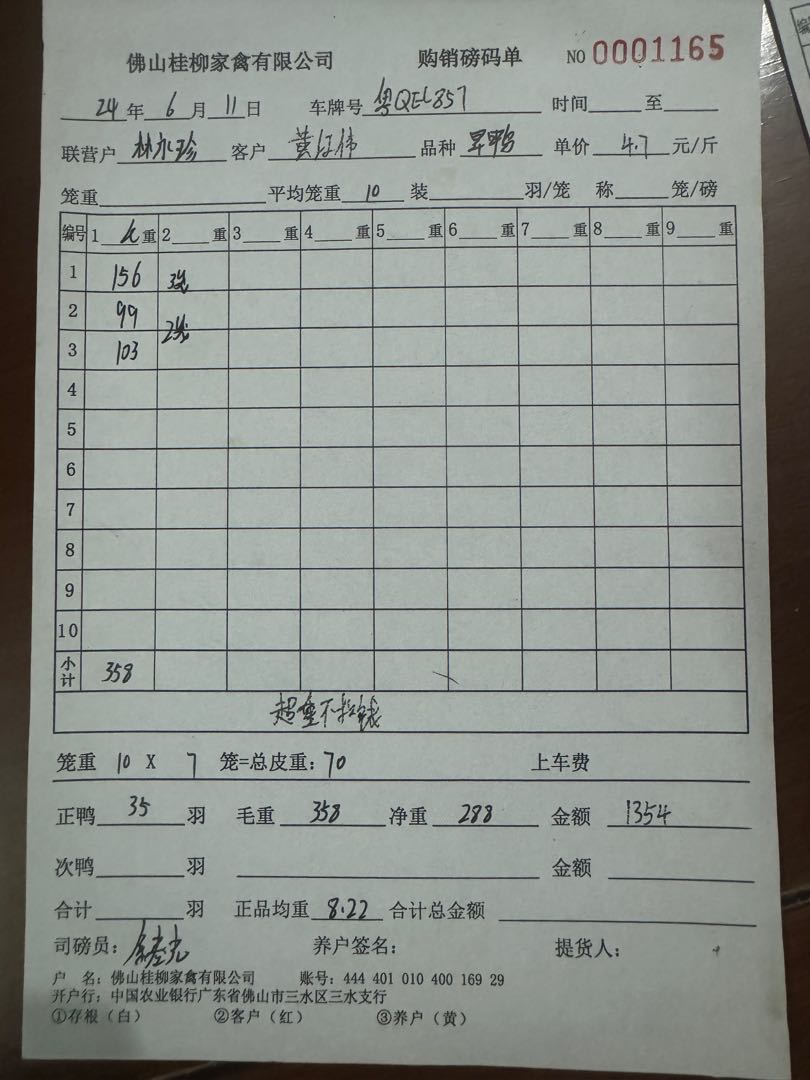 佛山桂柳家禽有限公司 购销磅码单 NO 0001165
24年 6月 11日 车牌号 粤QEL857 时间 至
联营户 林永珍 客户 黄 伟 品种 旱鸭 单价 4.7 元/斤
笼重 平均笼重 10 装 羽/笼 称 笼/磅
编号 1 重 2 重 3 重 4 重 5 重 6 重 7 重 8 重 9 重
1 156 3笼
2 99
3 103 2笼
4
5
6
7
8
9
10
小计 358
超重不扣钱
笼重 10 X 7 笼=总皮重：70 上车费
正鸭 35 羽 毛重 358 净重 288 金额 1354
次鸭 羽 金额
合计 羽 正品均重 8.22 合计总金额
司磅员： 养户签名： 提货人：
户 名：佛山桂柳家禽有限公司 账号：444 401 010 400 169 29
开户行：中国农业银行广东省佛山市三水区三水支行
①存根（白） ②客户（红） ③养户（黄）